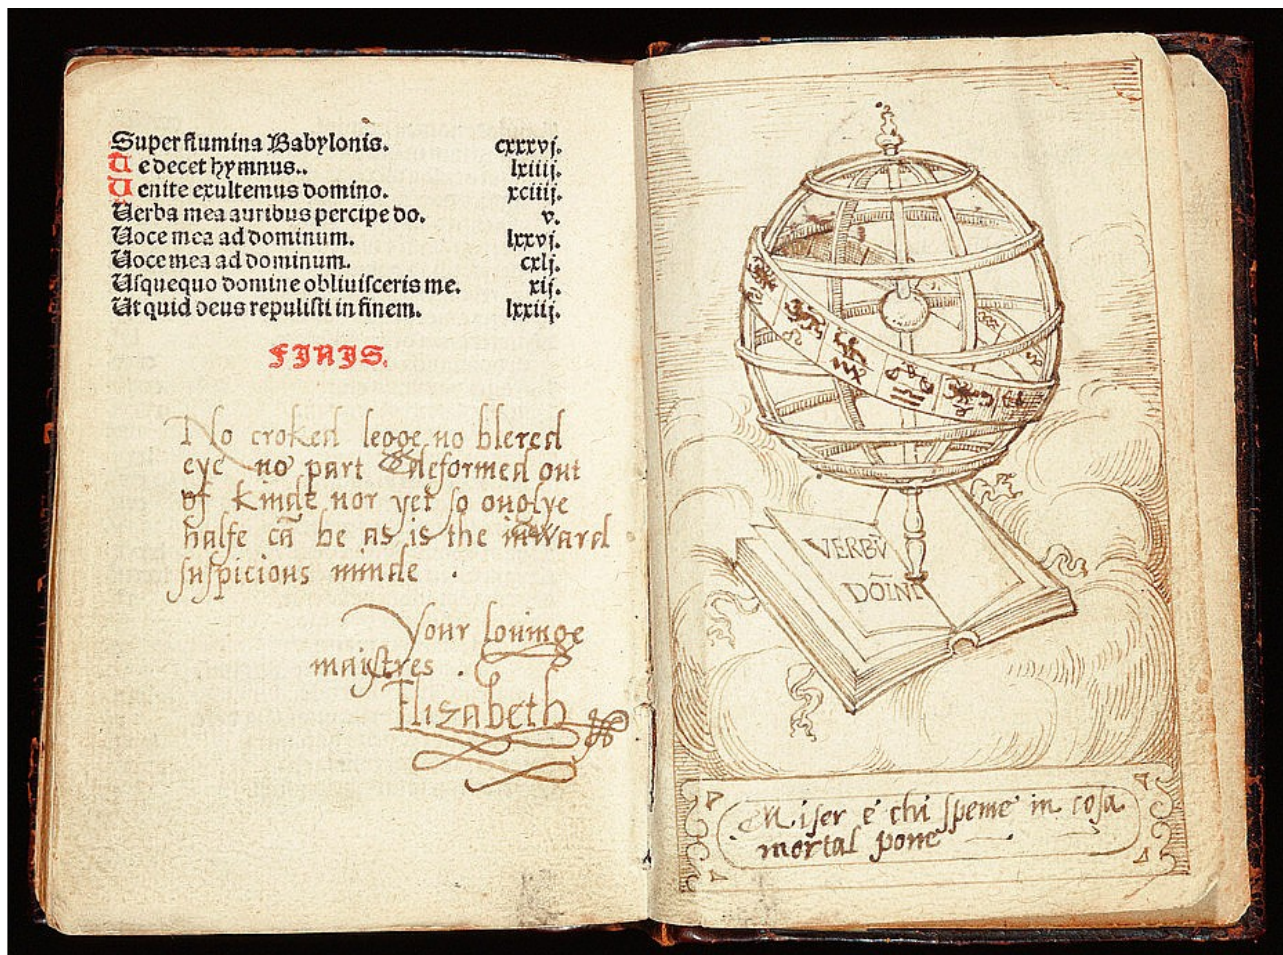 Super flumina Babylonis. cxxxvj.
Te decet hymnus.. lxiiij.
Uenite exultemus domino. xciiij.
Uerba mea auribus percipe do. v.
Uoce mea ad dominum. lxxvj.
Uoce mea ad dominum. cxlj.
Usquequo domine obliuisceris me. xij.
Ut quid deus repulisti in finem. lxxiij.
FINIS.
No croked legge no blered
eye no part deformed out
of kinde nor yet so ouglye
halfe cā be as is the inward
suspicious minde .
Your louinge
maistres .
Elizabeth
VERBŪ
DOĪNI
Miser è chi speme in cosa
mortal pone